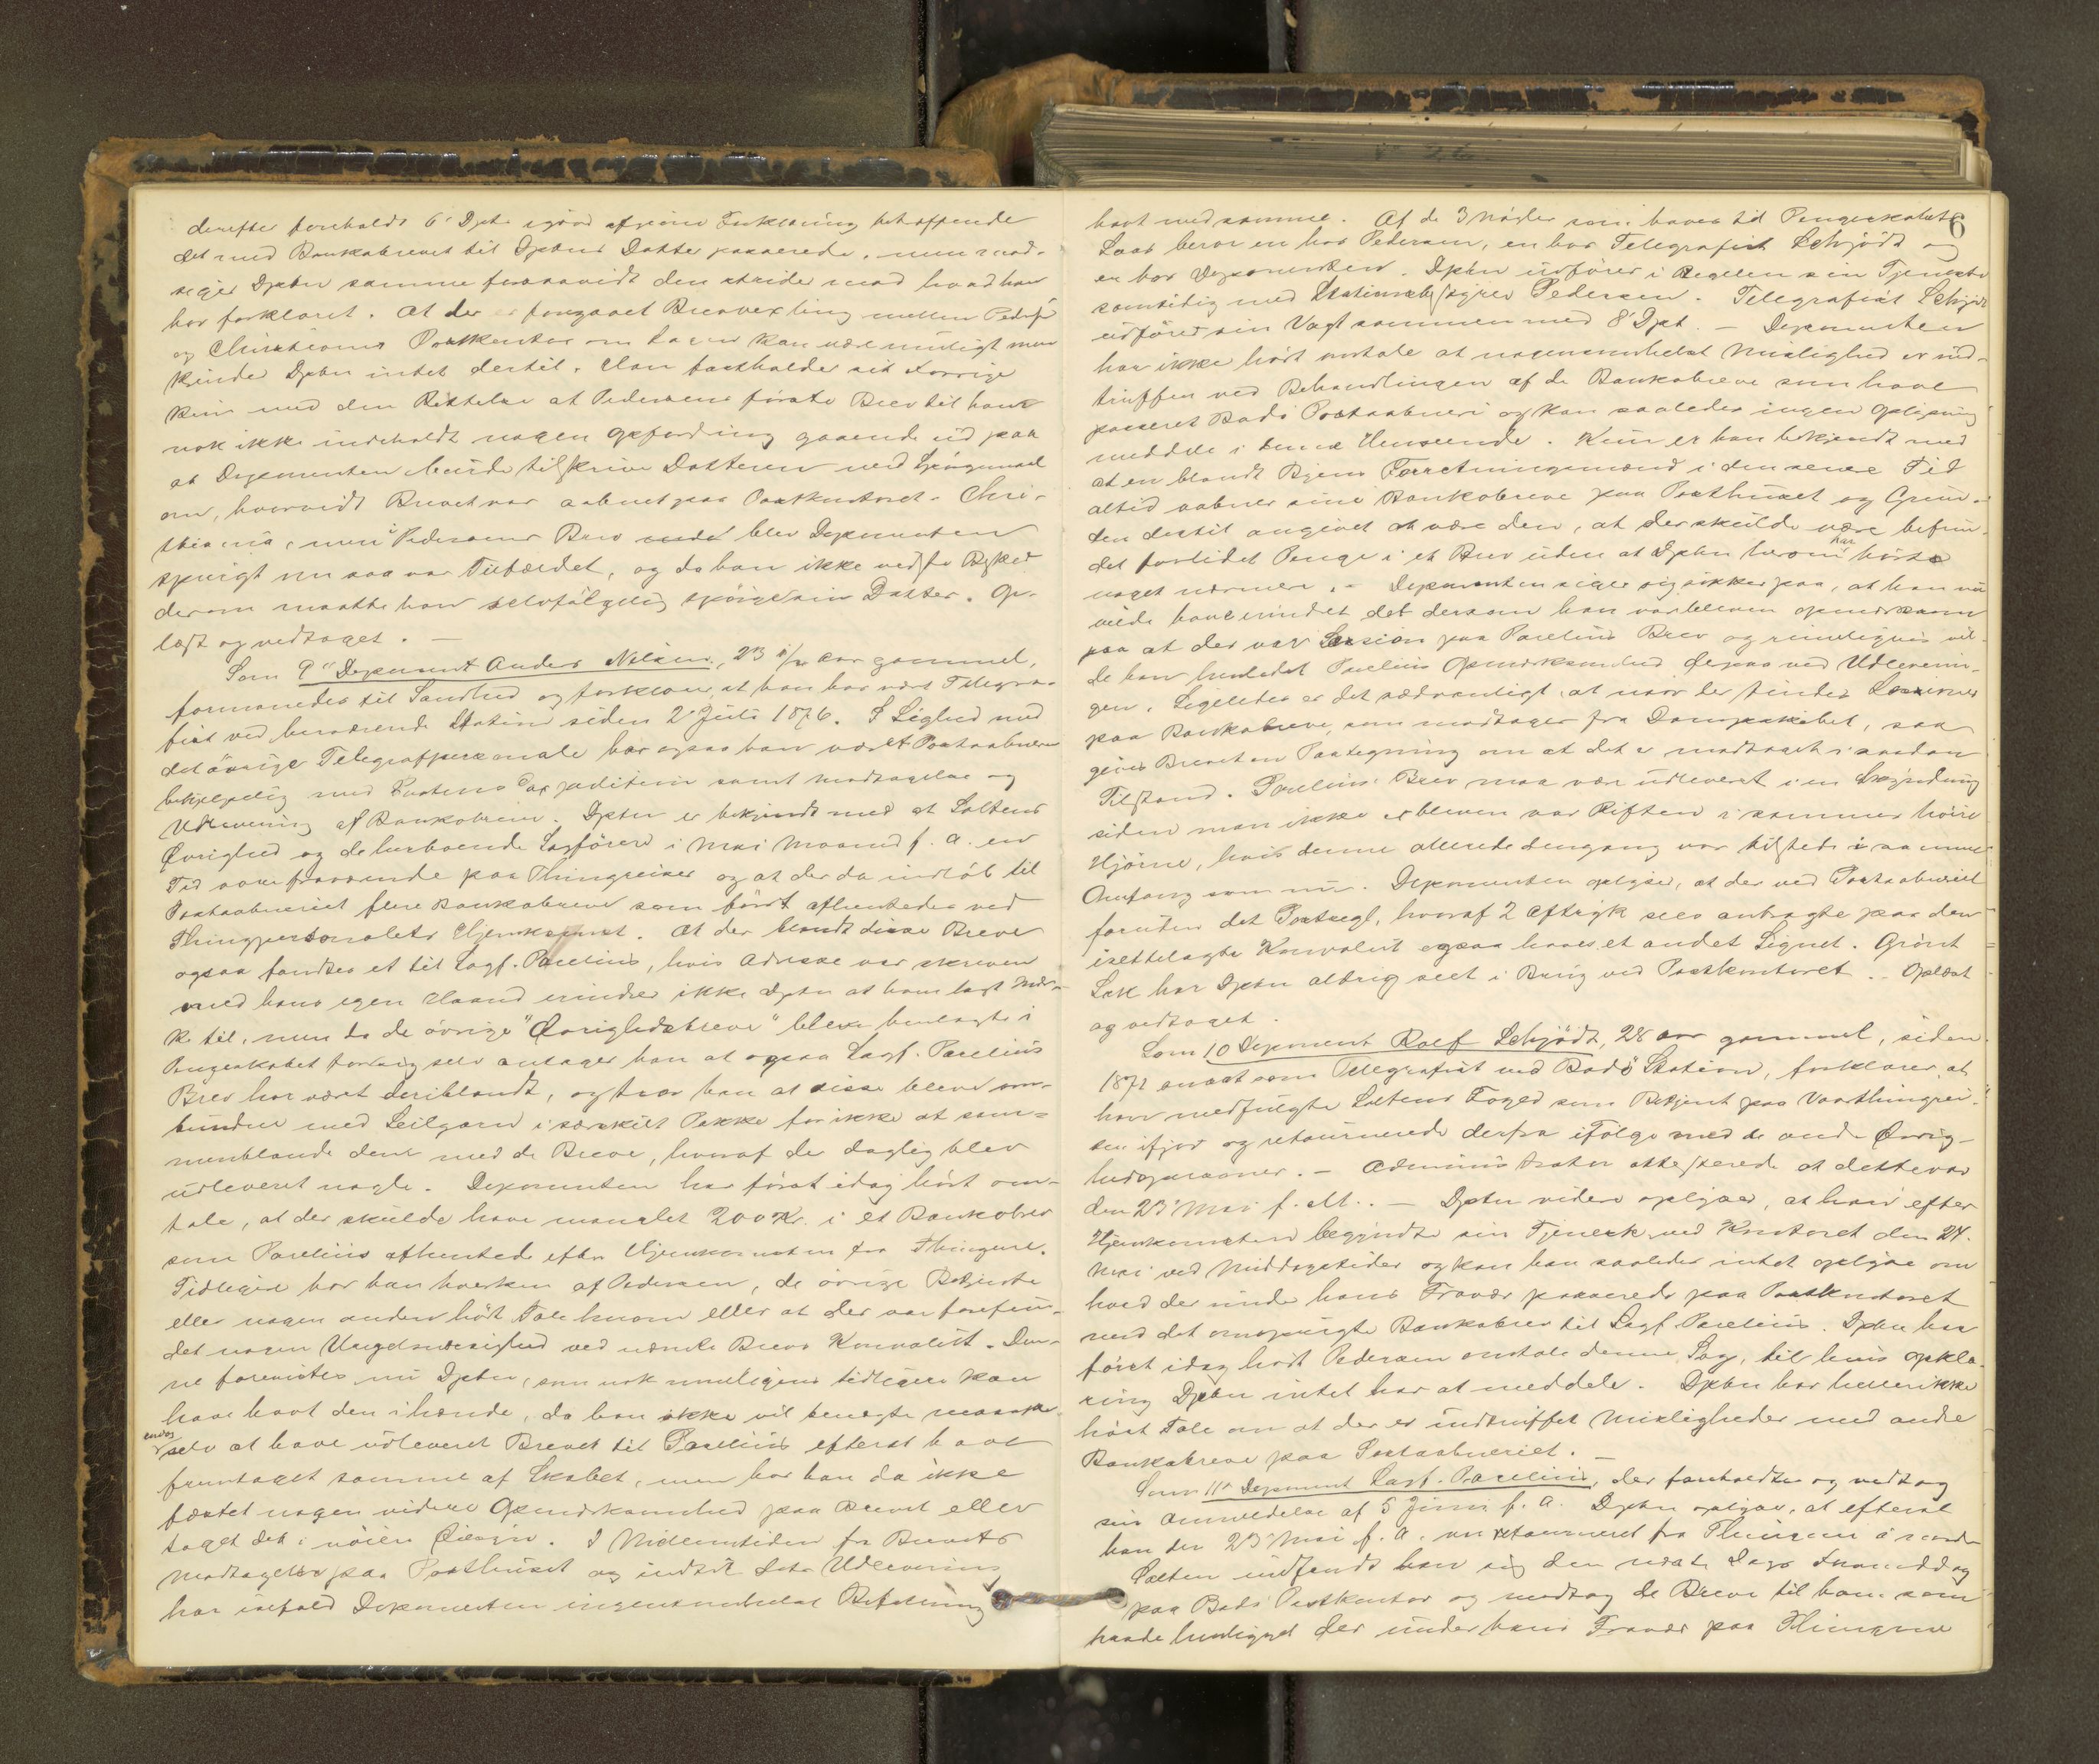 derefter foreholdt 6' Dpts igaar afgivne Forklaring betræffende
det med Bankobrevet til Dptens Datter passerede, men mod-
siger Dpten samme forsaavidt den strider mod hvad han
har forklaret. At der er foregaaet Brevvexling mellem Pedersen
og Christiania Postkontor om Sagen kan være muligt men
kjender Dpten intet dertil. Han fastholder sit Forrige
kun med den Rettelse at Pedersens første Brev til ham
nok ikke indeholdt nogen Opfordring gaaende ud paa
at Deponenten burde tilskrive Datteren med Spørgsmaal
om, hvorvidt Brevet var aabnet paa Postkontoret i Chri-
stiania, men i Pedersens Brev blev Deponenten
spurgt om saa var Tilfældet, og da han ikke vidste Besked
derom maatte han selvfølgelig spørge sin Datter. Op-
læst og vedtaget. —
Som 9de Deponent Anders Nilsen, 23 Aar gammel,
formanedes til Sandhed og forklarer, at han har vært Telegra-
fist ved herværende Station siden 2' Juli 1876. I Lighed med
det øvrige Telegrafpersonale har ogsaa han været Postaabneren
behjelpelig med Postens Expedition samt Modtagelse og
Udlevering af Bankobreve. Dpten er bekjendt med at Saltens
Øvrighed og de herboende Sagførere i Mai Maaned f. A. en
Tid vare fraværende paa Thingreiser og at der da indløb til
Postaabneriet flere Bankobreve som først afhentedes ved
Thingpersonalets Hjemkomst. At der blandt disse Breve
ogsaa fandtes et til Sagf. Parelius, hvis Adresse var skreven
med hans egen Haand erindrer ikke Dpten at have lagt Mær-
ke til, men da de øvrige "Øvrighedsbreve" bleve henlagte i
Pengeskabet for sig selv antager han at ogsaa Sagf. Parelius
Brev har været deriblandt, og tror han at disse bleve om-
bundne med Seilgarn i særskilt Pakke for ikke at sam-
menblande dem med de Breve, hvoraf der daglig blev
udleveret nogle. Deponenten har først idag hørt om-
tale, at der skulde have manglet 200 Kr. i et Bankobrev
som Parelius afhentede efter Hjemkomsten fra Thingene.
Tidligere har han hverken af Pedersen, de øvrige Betjente
eller nogen anden hørt Tale herom eller at der var forefun-
det nogen Uregelmæssighed ved nævnte Brevs Konvolut. Den-
ne forevistes nu Dpten, som nok muligens tidligere kan
have havt den i hænde, da han ikke vil benegte maaske
endog selv at have udleveret Brevet til Parelius efterat have
fremtaget samme af Skabet, men har han da ikke
fæstet nogen videre Opmærksomhed paa Brevet eller
taget det i nøien Øiesyn. I Mellemtiden fra Brevets
Modtagelse paa Posthuset og indtil dets Udlevering
har isefald Deponenten ingensomhelst Befatning
6
havt med samme. Af de 3 Nøgler som haves til Pengeskabets
Laas beror en hos Pedersen, en hos Telegrafist Schjødt og
en hos Deponenten. Dpten udfører i Regelen sin Tjeneste
samtidig med Stationsbestyrer Pedersen. Telegrafist Schjødt
udfører sin Vagt sammen med 8' Dpt. — Deponenten
har ikke hørt omtale at nogensomhelst Mislighed er ind-
truffen ved Behandlingen af de Bankobreve som have
passeret Bodø Postaabneri og kan saaledes ingen Oplysning
meddele i denne Henseende. Kun er han bekjendt med
at en blandt Byens Forretningsmænd i den senere Tid
altid aabner sine Bankobreve paa Posthuset og Grun-
den dertil angivet at være den, at der skulde være befun-
det forlidet Penge i et Brev uden at Dpten herom har hørt
noget nærmere. — Deponenten siger sig sikker paa, at han nu
vilde have erindret det dersom han var bleven opmærksom
paa at der var Læsion paa Parelius Brev og rimeligvis vil-
de han henledet Parelius Opmærksomhed derpaa ved Udleverin-
gen. Ligeledes er det sædvanligt, at naar der findes Læsioner
paa Bankobreve, som modtages fra Dampskibet, saa
gives Brevet en Paategning om at det er modtaget i saadan
Tilstand. Parelius' Brev maa være udleveret i en Skynding
siden man ikke er bleven var Riften i sammes høire
Hjørne, hvis denne allerede dengang var tilstede i samme
Omfang som nu. Deponenten oplyser, at der ved Postaabneriet
foruden det Postsegl, hvoraf 2 Aftryk sees anbragte paa den
irettelagte Konvolut ogsaa haves et andet Signet. Grønt
Lak har Dpten aldrig seet i Brug ved Postkontoret. — Oplæst
og vedtaget.
Som 10 Deponent Rolf Schjødt, 28 Aar gammel, siden
1872 ansat som Telegrafist ved Bodø Station, forklarer, at
han medfulgte Saltens Foged som Betjent paa Vaarthingrei-
sen ifjor og retournerede derfra ifølge med de andre Øvrig-
hedspersoner. — Administrator attesterede at dette var
den 23' Mai f. A. — Dpten videre oplyser, at han efter
Hjemkomsten begyndte sin Tjeneste ved Kontoret den 24.
Mai ved Middagstider og kan han saaledes intet oplyse om
hvad der under hans Fravær passerede paa Postkontoret
med det omspurgte Bankobrev til Sagf. Parelius. Dpten har
først idag hørt Pedersen omtale denne Sag, til hvis Opkla-
ring Dpten intet har at meddele. Dpten har heller ikke
hørt Tale om at der er indtruffet Misligheder med andre
Bankobreve paa Postaabneriet. —
Som 11te Deponent Sagf. Parelius, der foreholdtes og vedtog
sin Anmeldelse af 5 Juni f. A. Dpten oplyser, at efterat
han den 23' Mai f. A. var retourneret fra Thingene i nordre
Salten indfandt han sig den næste Dags Formiddag
paa Bodø Postkontor og modtog de Breve til ham som
havde henligget der under hans Fravær paa Thingene